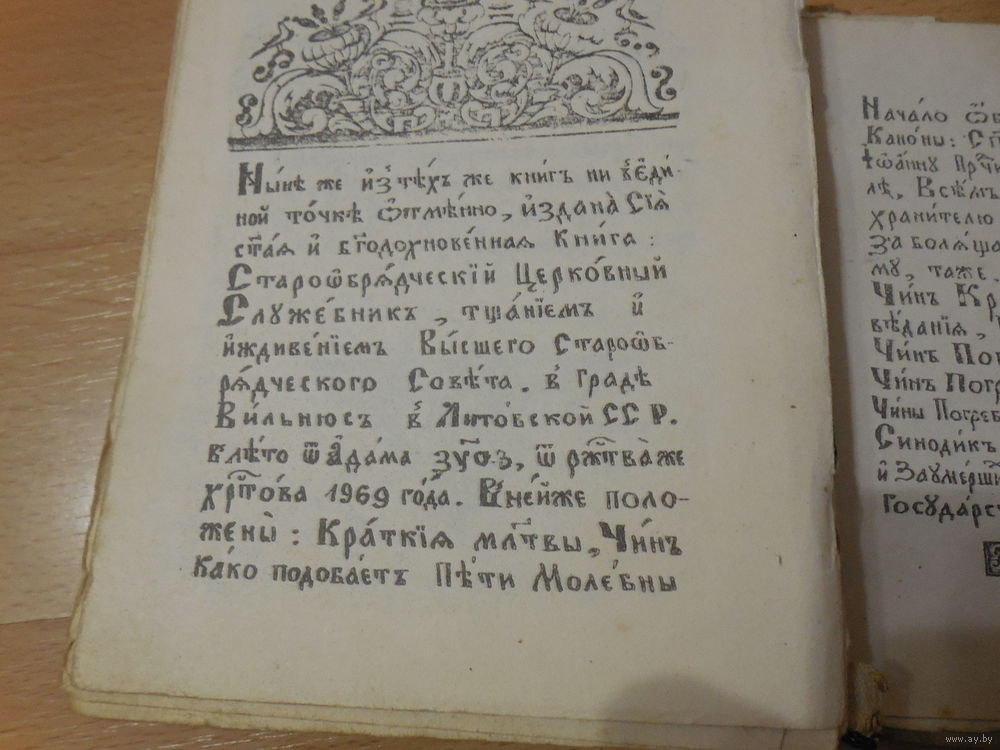 Ны́нѣ же и҆з̾ тѣ́хъ же книгъ ни в̾ є҆ди-
ной то́чкѣ ѿмѣ́нно, и҆здана̀ Сїѧ̀
ст҃а́ѧ и҆ бг҃одохнове́ннаѧ Кни́га:
Староѡбрѧ́дческїй Церко́вный
Служе́бникъ, тща́нїемъ и҆
и҆ждиве́нїемъ Вы́сшего Староѡб-
рѧ́дческого Совѣ́та. в̾ градѣ
Ви́льнюсъ в̾ Лито́вской ССР.
в лѣ́то ѿ А҆да́ма ҂зуоз, ѿ ржⷭ҇тва же
хрⷭ҇то́ва 1969 го́да. В̾ не́йже поло-
жены̀: Кра́ткїѧ мл҃твы, Чи́нъ
ка́ко подоба́етъ Пѣ́ти Моле́бны
Нача́ло
Кано́ны:
І҆ѡа́нну
лѣ, Всѣ́мъ
храни́телю
за болѧ́ща
му, таже
Чи́нъ
вѣ́данїѧ,
Чи́нъ
Чи́нъ
Чи́ны
Синоди́къ
и҆
Госуда́рс
www.ay.by